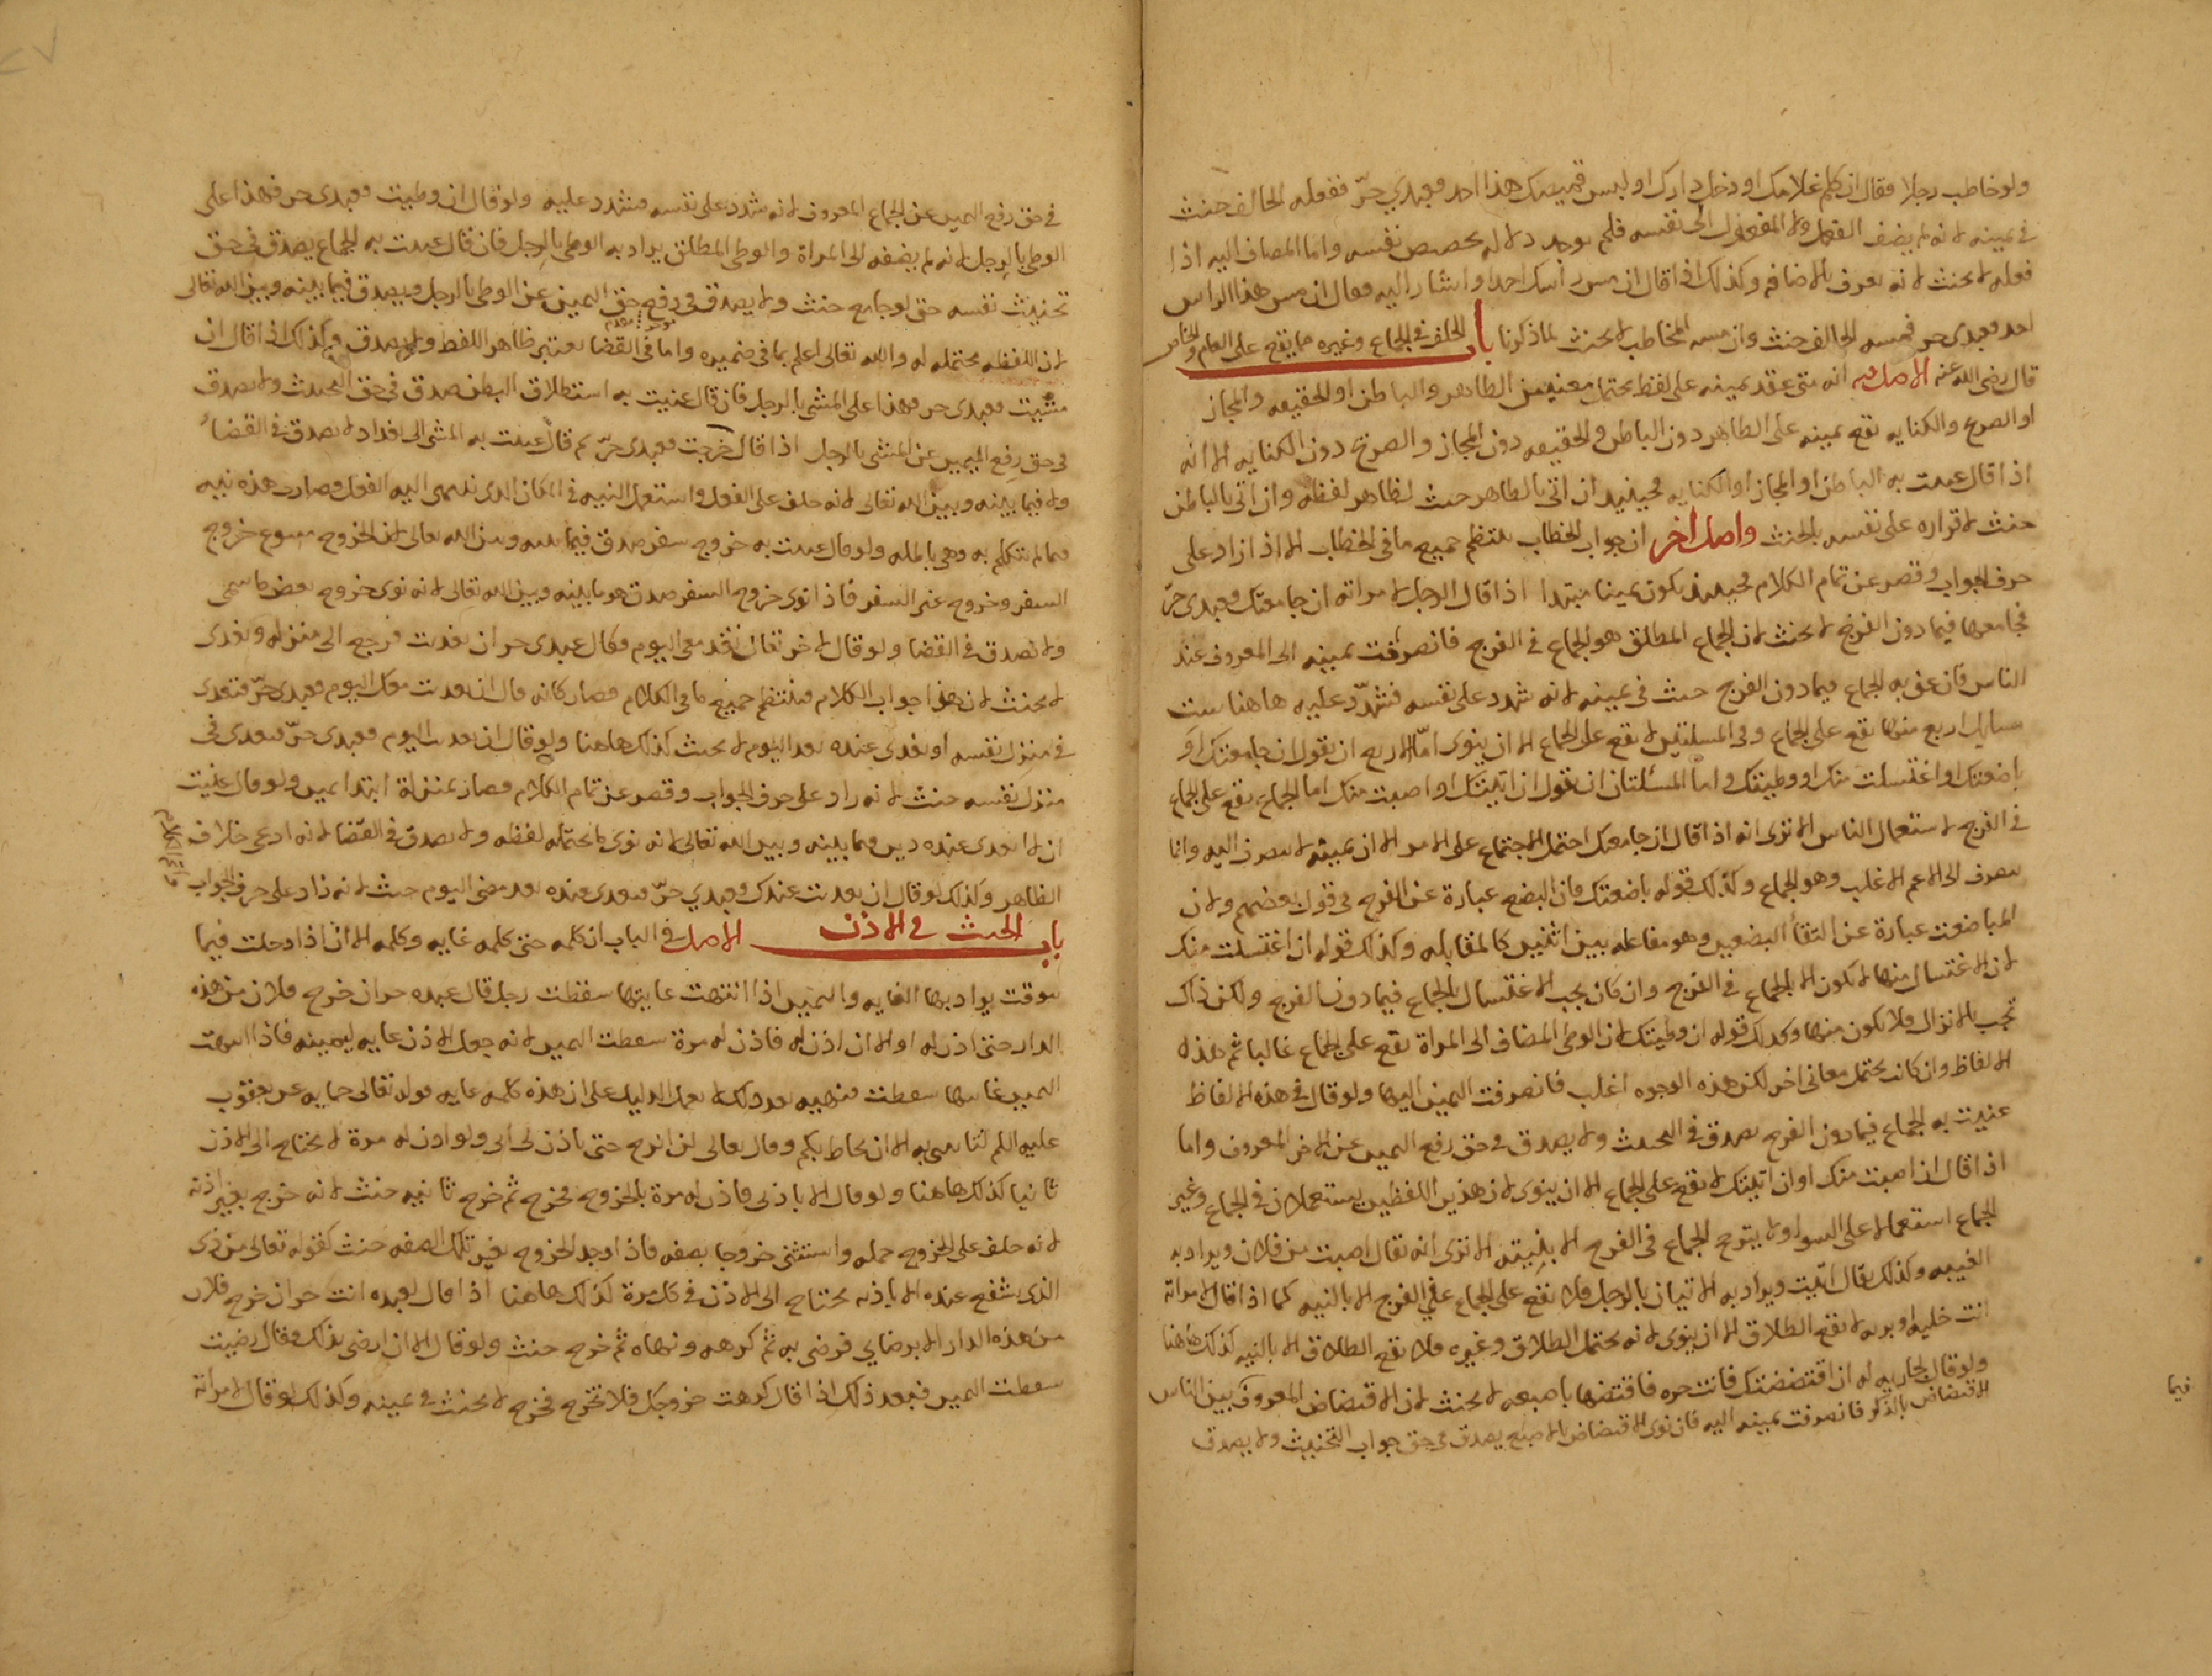 ولو خاطب رجلا فقال ان كلم غلامك او دخل دارك او لبس قميصك هذا احد فعبدي حرّ ففعله الحالف حنث
في يمينه لانه لم يضف الفعل ولا المفعول الى نفسه فلم يوجد دلاله تخصيص نفسه واما المضاف اليه اذا
فعله لا يحنث لانه تعرف بالاضافه وكذلك اذا قال ان مس راسك احد او اشار اليه فقال ان مس هذا الراس
احد فعبدي حر فمسه الحالف حنث وان مسه المخاطب لا يحنث لما ذكرنا باب الحلف في الجماع وغيره مما يقع على العام والخاص
قال رضى الله عنه الاصل فيه انه متى عقد يمينه على لفظ يحتمل معنيين الظاهر والباطن او الحقيقه والمجاز
او الصريح والكنايه تقع يمينه على الظاهر دون الباطن والحقيقه دون المجاز والصريح دون الكنايه الا انه
اذا قال عنيت به الباطن او المجاز او الكنايه فحينئذ ان اتى بالظاهر حنث لظاهر لفظه وان اتى بالباطن
حنث لاقراره على نفسه بالحنث واصل اخر ان جواب الخطاب ينتظم جميع ما في الخطاب الا اذا زاد على
حرف الجواب وقصر عن تمام الكلام فحينئذ يكون يمينا مبتدا اذا قال الرجل لامراته ان جامعتك فعبدى حرّ
فجامعها فيما دون الفرج لا يحنث لان الجماع المطلق هو الجماع في الفرج فانصرفت يمينه الى المعروف عند
الناس فان عنى به الجماع فيما دون الفرج حنث في يمينه لانه شدد على نفسه فشدّد عليه هاهنا ست
مسايل اربع منها تقع على الجماع وفي المسلتين لا يقع على الجماع الا ان ينوى امّا الاربع ان تقول ان جامعتك او
باضعتك او اغتسلت منك او وطيتك واما المسئلتان ان تقول ان اتيتك او اصبت منك اما الجماع يقع على الجماع
في الفرج لاستعمال الناس الا ترى انه اذا قال ان جامعتك احتمل الاجتماع على الامر الا ان يمينه لا تنصرف اليه وانما
تنصرف الى الاعم الاغلب وهو الجماع وكذلك قوله باضعتك فان البضع عبارة عن الفرج في قول بعضهم ولان
المباضعت عبارة عن التقا البضعين وهو مفاعله بين اثنين كالمقابله وكذلك قوله ان اغتسلت منك
لان الاغتسال منها لا يكون الا بالجماع في الفرج وان كان يجب الاغتسال بالجماع فيما دون الفرج ولكن ذاك
يجب بالانزال فلا يكون منها وكذلك قوله ان وطيتك لان الوطى المضاف الى المراة تقع على الجماع غالبا ثم هذه
الالفاظ وان كانت يحتمل معانى اخر لكن هذه الوجوه اغلب فانصرفت اليمين اليها ولو قال في هذه الالفاظ
عنيت به الجماع فيما دون الفرج يصدق في التحنيث ولا يصدق في حق رفع اليمين عن الاخر المعروف واما
اذا قال ان اصبت منك او ان اتيتك لا تقع على الجماع الا ان ينوى لان هذين اللفظين يستعملان في الجماع وغير
الجماع استعمالا على السوا ولا يترجح الجماع في الفرج الا بنيته الا ترى انه يقال اصبت من فلان ويراد به
الغيبه وكذلك يقال اتيت ويراد به الاتيان بالرجل فلا تقع على الجماع في الفرج الا بالنيه كما اذا قال لامراته
انت خليه او بريه لا تقع الطلاق الا ان ينوى لانه يحتمل الطلاق وغيره فلا تقع الطلاق الا بالنيه كذلك هاهنا
ولو قال لجاريه له ان اقتضضتك فانت حره فاقتضها باصبعه لا يحنث لان الاقتضاض المعروف بين الناس
الاقتضاض بالذكر فانصرفت يمينه اليه فان نوى الاقتضاض بالاصبع يصدق في حق جواب التحنيث ولا يصدق
فيما
في حق رفع اليمين عن الجماع المعروف لانه شدد على نفسه فشدد عليه ولو قال ان وطيت فعبدى حر فهذا على
الوطى بالرجل لانه لم يضفه الى المراة والوطى المطلق يراد به الوطى بالرجل فان قال عنيت به الجماع يصدق في حق
تحنيث نفسه حتى لو جامع حنث ولا يصدق في رفع حق اليمين عن الوطى بالرجل ويصدق فيما بينه وبين الله تعالى
لان اللفظه محتمله له والله تعالى اعلم بما في ضميره واما في القضا يعتبر ظاهر اللفظ ولا يصدق وكذلك اذا قال ان
مشيت فعبدى حر فهذا على المشى بالرجل فان قال عنيت به استطلاق البطن صدق في حق التحنيث ولا يصدق
في حق رفع اليمين عن المشى بالرجل اذا قال خرجت فعبدى حرّ ثم قال عنيت به المشى الى بغداد لا يصدق في القضاء
ولا فيما بينه وبين الله تعالى لانه حلف على الفعل واستعمل النيه في المكان الذى ينتهى اليه الفعل فصارت هذه نيه
فيما لم يتكلم به وهى باطله ولو قال عنيت به خروج سفر صدق فيما بينه وبين الله تعالى لان الخروج متنوع خروج
السفر وخروج غير السفر فاذا نوى خروج السفر صدق هو ما بينه وبين الله تعالى لانه نوى خروج بعض ما سمى
ولا يصدق في القضا ولو قال لاخر تعال تغد معى اليوم فقال عبدى حر ان تغديت فرجع الى منزله وتغدى
لا يحنث لان هذا جواب الكلام فينتظم جميع ما في الكلام فصار كانه قال ان تغديت معك اليوم فعبدى حرّ فتغدى
في منزل نفسه او تغدى عنده بعد اليوم لا يحنث كذلك هاهنا ولو قال ان تغديت اليوم فعبدى حرّ فتغدى في
منزل نفسه حنث لانه زاد على حرف الجواب وقصر عن تمام الكلام فصار بمنزلة ابتدا يمين ولو قال عنيت
ان لا اتغدى عنده دين فيما بينه وبين الله تعالى لانه نوى ما يحتمله لفظه ولا يصدق في القضا لانه ادعى خلاف
الظاهر وكذلك لو قال ان تغديت عندك فعبدي حرّ فتغدى عنده بعد مضى اليوم حنث لانه زاد على حرف الجواب
باب الحنث في الاذن الاصل في الباب ان كلمه حتى كلمه غايه وكلمه الا ان اذا دخلت فيما
يتوقت يراد بها الغايه واليمين اذا انتهت غايتها سقطت رجل قال عبده حر ان خرج فلان من هذه
الدار حتى اذن له او الا ان اذن له فاذن له مرة سقطت اليمين لانه جعل الاذن غايه ليمينه فاذا انتهت
اليمين غايتها سقطت فنهيه بعد ذلك لا يعمل الدليل على ان هذه كلمه غايه قوله تعالى حكايه عن يعقوب
عليه السلم لتاتننى به الا ان يحاط بكم وقال تعالى لن ابرح حتى ياذن لى ابى ولو اذن له مرة لا يحتاج الى الاذن
ثانيا كذلك هاهنا ولو قال الا باذنى فاذن له مرة بالخروج فخرج ثم خرج ثانيه حنث لانه خرج بغير اذنه
لانه حلف على الخروج جمله واستثنى خروجا بصفه فاذا وجد الخروج بغير تلك الصفه حنث كقوله تعالى من ذى
الذى يشفع عنده الا باذنه يحتاج الى الاذن في كل مرة كذلك هاهنا اذا قال لعبده انت حر ان خرج فلان
من هذه الدار الا برضاي فرضى به ثم كرهه ونهاه ثم خرج حنث ولو قال الا ان ارضى بذلك وقال رضيت
سقطت اليمين فبعد ذلك اذا قال كرهت خروجك فلا تخرج فخرج لا يحنث في يمينه وكذلك لو قال لامراته